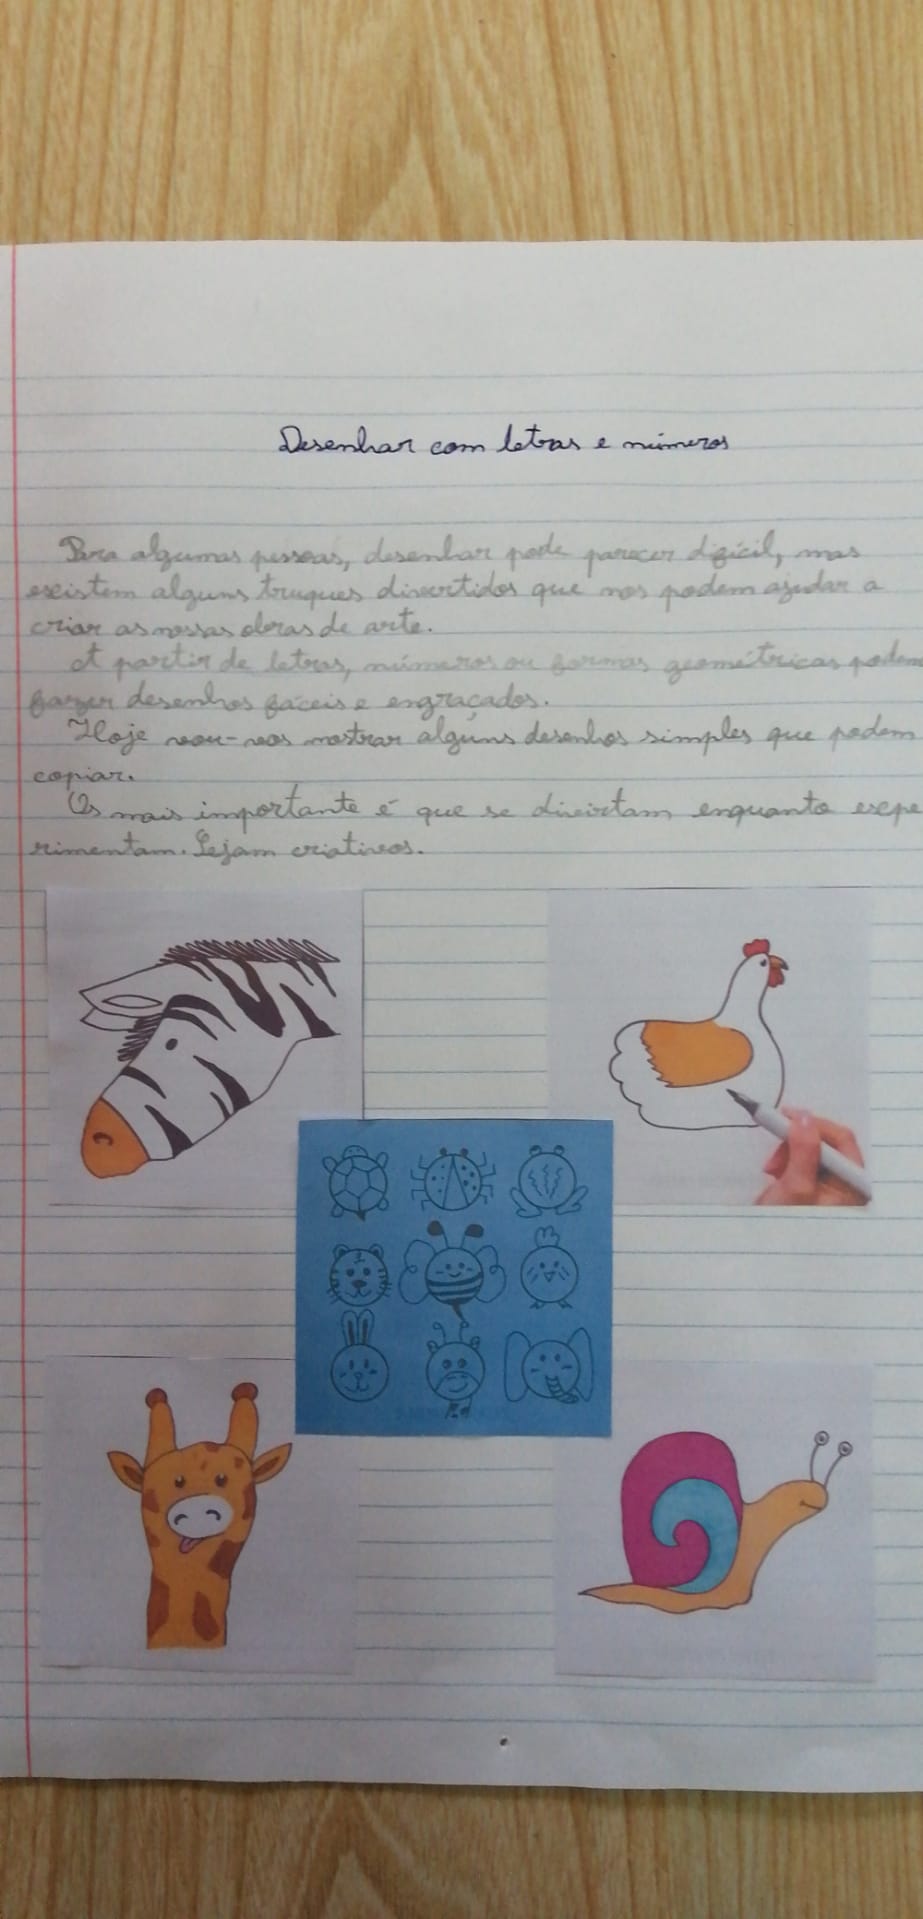 Desenhar com letras e números
Para algumas pessoas, desenhar pode parecer difícil, mas
existem alguns truques divertidos que nos podem ajudar a
criar as nossas obras de arte.
A partir de letras, números ou formas geométricas podem
fazer desenhos fáceis e engraçados.
Hoje vou-vos mostrar alguns desenhos simples que podem
copiar.
Os mais importante é que se divirtam enquanto expe
rimentam. Sejam criativos.